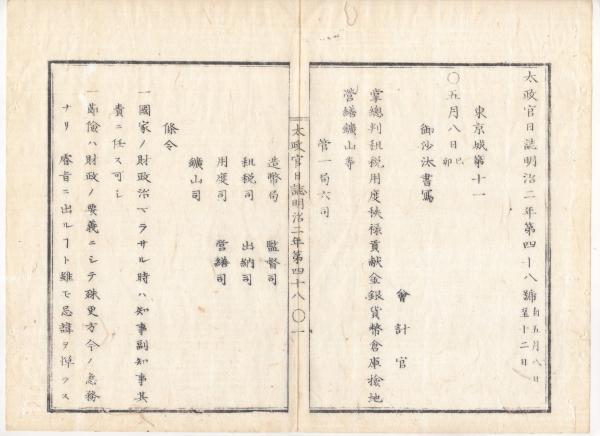 太政官日誌明治二年第四十八號 自五月八日
至十二日
東京城第十一
〇五月八日 己卯
御沙汰書寫
會計官
掌總判租税用度秩禄貢献金銀貨幣倉庫撿地
營繕鑛山等
管一局六司
太政官日誌明治二年第四十八 〇一
造幣局 監督司
租税司 出納司
用度司 營繕司
鑛山司
條令
一國家ノ財政治マラサル時ハ知事副知事其
責ニ任ス可シ
一節儉ハ財政ノ要義ニシテ殊更方今ノ急務
ナリ 睿旨ニ出ルト雖モ忌諱ヲ憚ラス